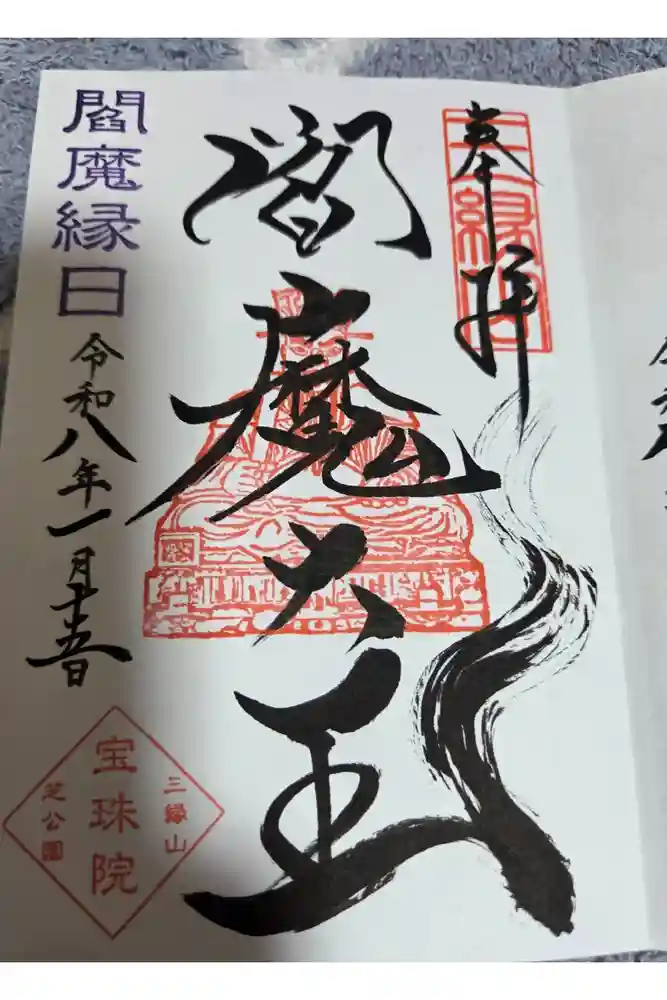 奉拝
三縁山
閻魔大王
閻魔縁日
令和八年一月十五日
三縁山
宝珠院
芝公園